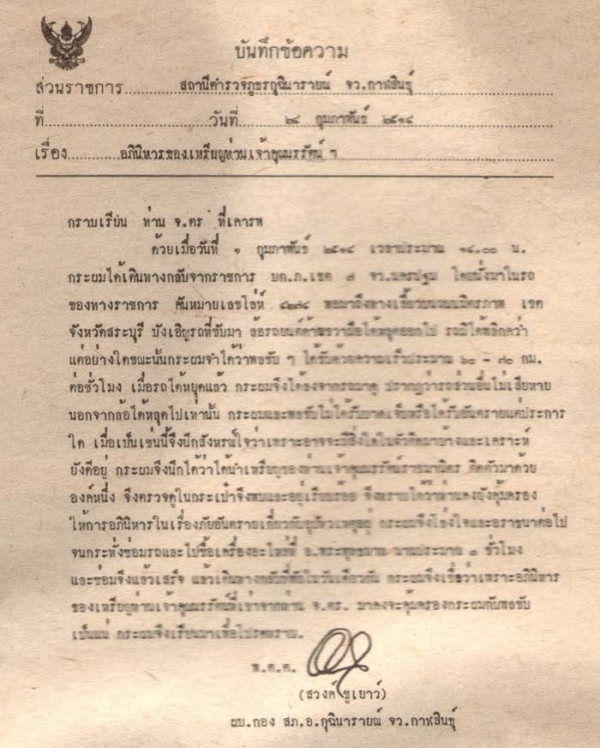 บันทึกข้อความ
ส่วนราชการ สถานีตำรวจภูธรกุฉินารายณ์ จว.กาฬสินธุ์
ที่ วันที่ ๒๘ กุมภาพันธ์ ๒๕๑๔
เรื่อง อภินิหารของเหรียญท่านเจ้าคุณนรรัตน์ ฯ
กราบเรียน ท่าน จ.ตร ที่เคารพ
ด้วยเมื่อวันที่ ๑ กุมภาพันธ์ ๒๕๑๔ เวลาประมาณ ๑๔.๐๐ น.
กระผมได้เดินทางกลับจากราชการ บก.ภ.เขต ๗ จว.นครปฐม โดยนั่งมาในรถ
ของทางราชการ คันหมายเลขโล่ห์ พอมาถึงทาง ถนนมิตรภาพ เขต
จังหวัดสระบุรี บังเอิญรถที่ขับมา ล้อรถยนต์ด้านขวามือได้หลุดออกไป รถมิได้พลิกคว่ำ
แต่อย่างใดขณะนั้นกระผมจำได้ว่าพลขับ ๆ ได้ขับด้วยความเร็วประมาณ ๖๐ - ๗๐ กม.
ต่อชั่วโมง เมื่อรถได้หยุดแล้ว กระผมจึงได้ลงจากรถมาดู ปรากฏว่ารถส่วนอื่นไม่เสียหาย
นอกจากล้อได้หลุดไปเท่านั้น กระผมและพลขับไม่ได้รับบาดเจ็บหรือได้รับอันตรายแต่ประการ
ใด เมื่อเป็นเช่นนี้จึงนึกสังหรณ์ใจว่าเพราะอาจจะมีสิ่งใดในตัวติดมาบ้างและเคราะห์
ยังดีอยู่ กระผมจึงนึกได้ว่าได้นำเหรียญของท่านเจ้าคุณนรรัตน์ราชมานิตร ติดตัวมาด้วย
องค์หนึ่ง จึงตรวจดูในกระเป๋าจึงพบและอยู่เรียบร้อย จึงทราบได้ว่าท่านคงยังคุ้มครอง
ให้การอภินิหารในเรื่องภัยอันตรายเกี่ยวกับอุบัติเหตุอยู่ กระผมจึงโล่งใจและอาราธนาต่อไป
จนกระทั่งซ่อมรถและไปซื้อเครื่องอะไหล่ที่ อ.พระพุทธบาท นานประมาณ ๓ ชั่วโมง
และซ่อมจึงแล้วเสร็จ แล้วเดินทางกลับที่พักในวันเดียวกัน กระผมจึงเชื่อว่าเพราะอภินิหาร
ของเหรียญท่านเจ้าคุณนรรัตน์ที่เช่าจากท่าน จ.ตร. มาคงจะคุ้มครองกระผมกับพลขับ
เป็นแน่ กระผมจึงเรียนมาเพื่อโปรดทราบ.
พ.ต.ต.
(สวงค์ ชูเยาว์)
ผบ.กอง สภ.อ.กุฉินารายณ์ จว.กาฬสินธุ์